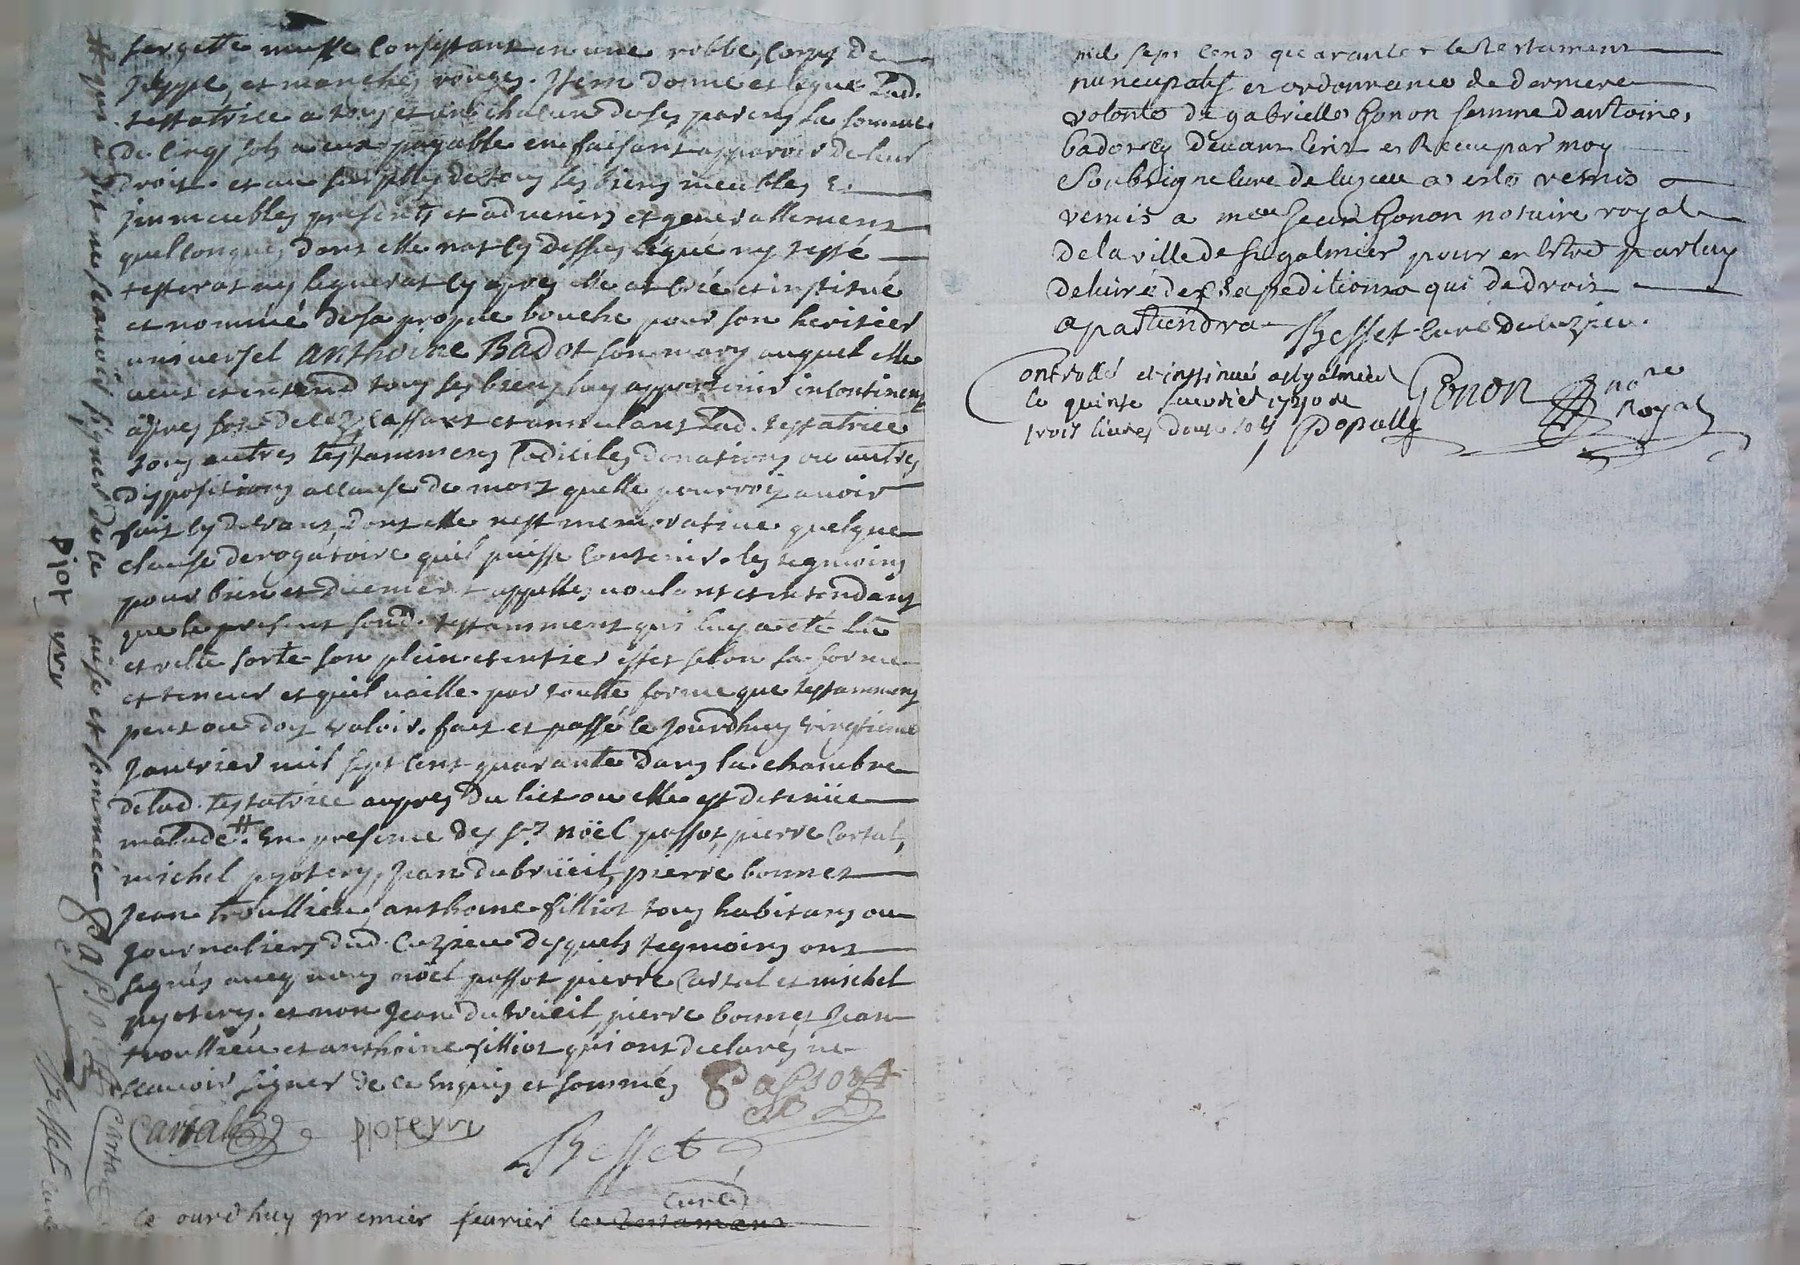 sergette neufve consistant en une robbe, corps de
juppe, et manches rouges. Item donne et legue lad.
testatrice a tous et un chacun de ses parens la somme
de cinq sols a eux payable en faisant apparoir de leur
droit. et au surplus de tous ses biens meubles &
immeubles presents et advenirs et generallement
quelconques dont elle nat cy dessus légué ny testé
testerat ny leguerat cy après elle at créé et institué
et nommé de sa propre bouche pour son heritier
universel anthoine Badot son mary auquel elle
veut et entend tous ses biens luy appartenir incontinent
apres son decez, cassant et annulant lad. testatrice
tous autres testamments codiciles donations ou autres
dispositions a cause de mort quelle pourroit avoir
fait cy devant, dont elle nest memorative quelque
clause derogatoire quil puisse contenir. les tegmoins
pour bien et duement appellés voulant et entendant
que le present sond. testamment qui luy a été lû
et relû sorte son plein et entier effet selon sa forme
et teneur et quil vaille par toutte forme que testamment
peut ou doit valoir. fait et passé le jourdhuy vingtieme
janvrier mil sept cent quarante dans la chambre
de lad. testatrice aupres du lict ou elle est detenüe
malade # En presence des Srs noël passot, pierre Cartal,
michel pyotery, jean dubrüeil, pierre bonnet
jean troullieu, anthoine filliot tous habitans ou
journaliers dud. Cuzieu desquels tegmoins ont
signés avec nous noël passot pierre Cartal et michel
pyotery, et non jean dubrüeil pierre bonnet jean
troullieu et anthoine filliot qui ont declarés ne
scavoir signer de ce enquis et sommés Passot
Cartal piotery
Besset
curé
Ce ourdhuy premier fevrier le testament
# qui a dit ne scavoir signer de ce enquise et sommée Passot
piotery
Cartal
Besset curé
mil sept cens quarante le testament
nuncupatif et ordonnance de derniere
volonté de gabrielle Gonon femme dantoine
badot cy devant ecrit et Receu par moy
Soubsigné curé de Cuzieu a esté remis
remis a me Jean Gonon notaire royal
de la ville de St galmier pour en estre par luy
delivré des expeditions a qui de droit
apartiendra Besset curé de Cuzieu.
Controllé et insinué a St galmier
le quinze fevrier 1740 Re
trois livres douze sols Populle
Gonon nore
Royal